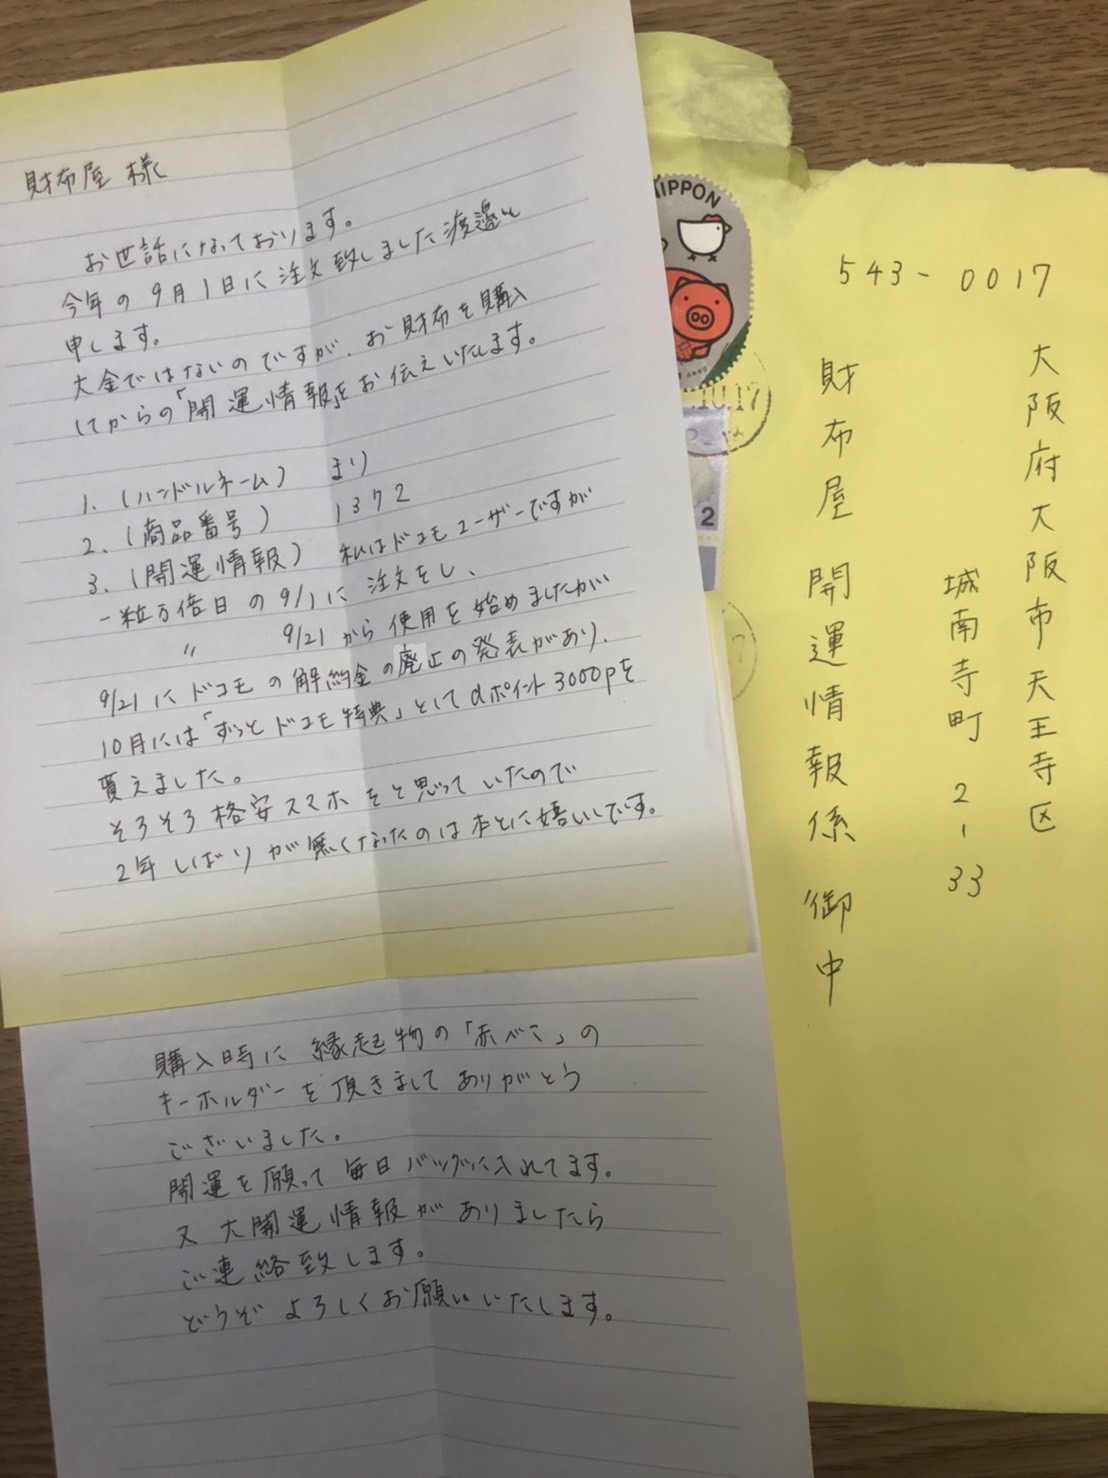 財布屋 様
お世話になっております。
今年の9月1日に注文致しました渡邊と
申します。
大金ではないのですが、お財布を購入
してからの「開運情報」をお伝えいたします。
1.(ハンドルネーム) まり
2.(商品番号) 1372
3.(開運情報) 私はドコモユーザーですが
一粒万倍日の9/1に注文をし、
〃 9/21から使用を始めましたが
9/21にドコモの解約金の廃止の発表があり、
10月には「ずっとドコモ特典」としてdポイント3000pを
貰えました。
そろそろ格安スマホをと思っていたので
2年しばりが無くなったのは本とに嬉しいです。
購入時に縁起物の「赤べこ」の
キーホルダーを頂きましてありがとう
ございました。
開運を願って毎日バッグに入れてます。
又大開運情報がありましたら
ご連絡致します。
どうぞよろしくお願いいたします。
NIPPON
10.17
2
543-0017
大阪府大阪市天王寺区
城南寺町2-33
財布屋 開運情報係 御中